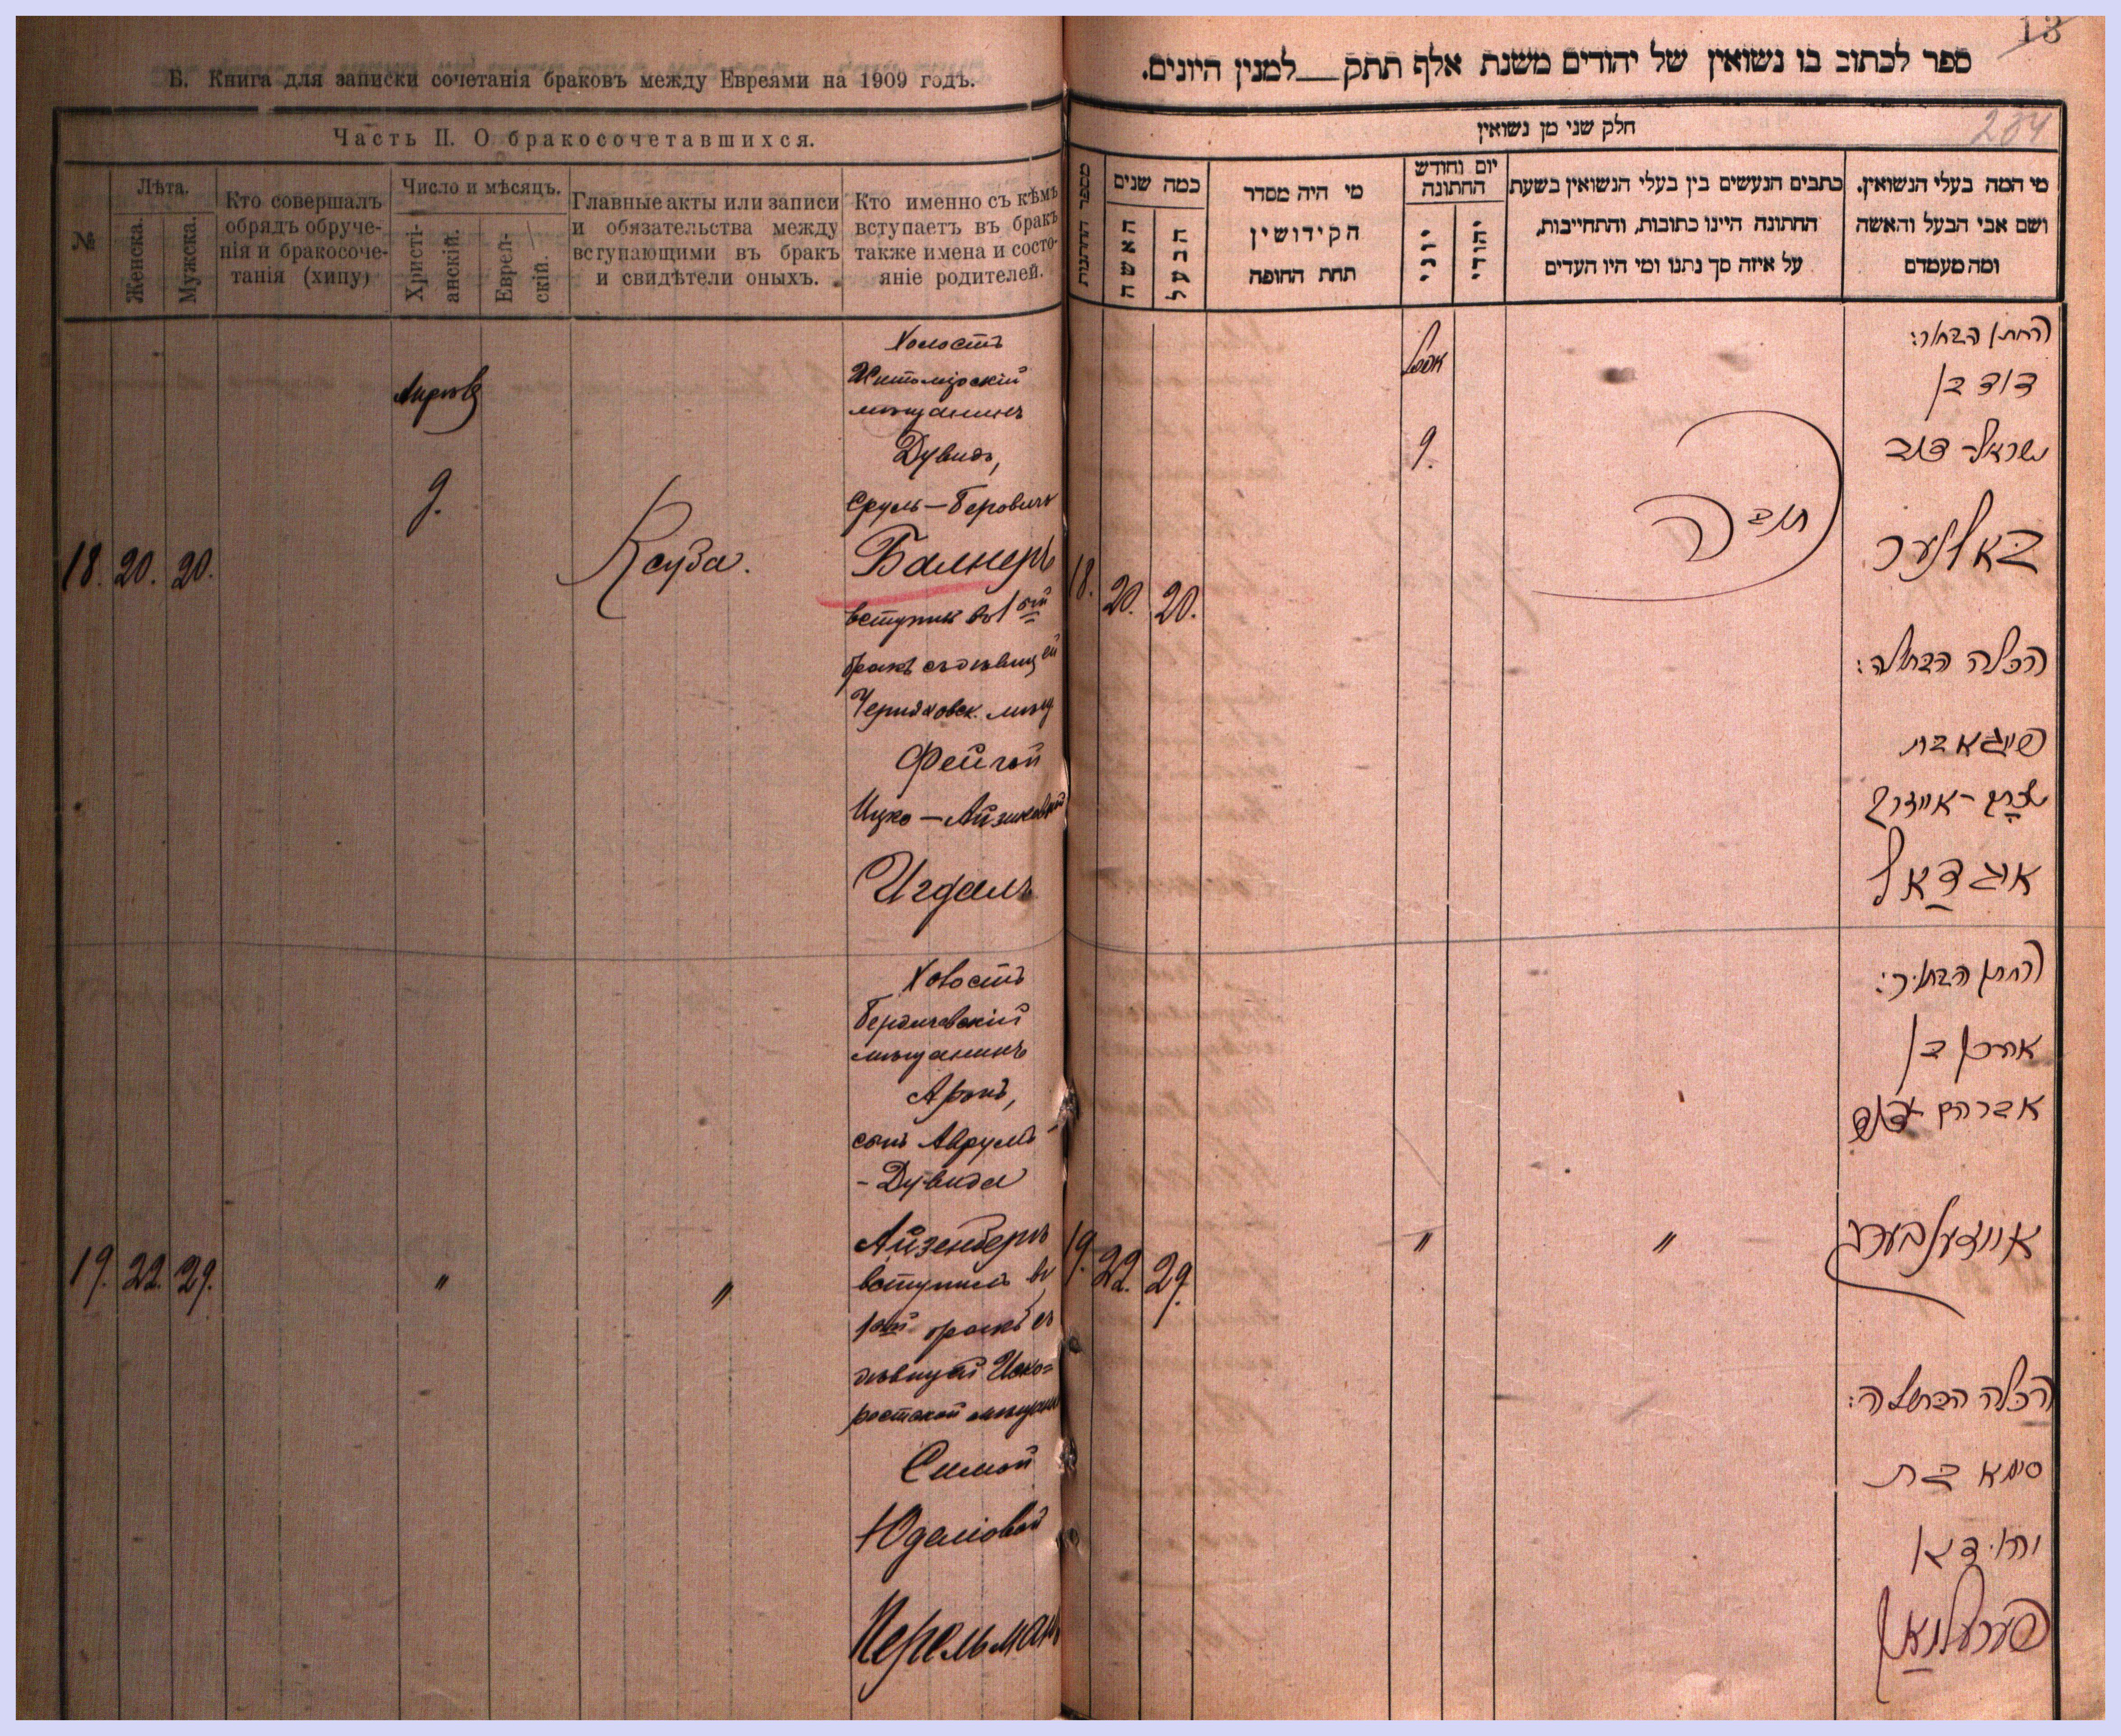 Б. Книга для записки сочетанія браковъ между Евреями на 1909 годъ.
Часть II. О бракосочетавшихся.
№
Лѣта.
Женска.
Мужска.
Кто совершалъ
обрядъ обруче-
нія и бракосоче-
танія (хипу)
Число и мѣсяцъ.
Христі-
анскій.
Еврей-
скій.
Главные акты или записи
и обязательства между
вступающими въ бракъ
и свидѣтели оныхъ.
Кто именно съ кѣмъ
вступаетъ въ бракъ
также имена и состо-
яніе родителей.
18. 20. 20.
9.
Ксуба.
Холостъ
Житомірскій
мѣщанинъ
Дувидъ,
Сруль-Беровичъ
Балнеръ
вступилъ въ 1ый
бракъ съ дѣвицей
Черняховск. мѣщ
Фейгой
Ицко-Айзиковой
Игдалъ
19. 22. 29.
"
"
Холостъ
Бердичевскій
мѣщанинъ
Аронъ,
сынъ Аврумъ
-Дувида
Айзенбергъ
вступилъ въ
1ый бракъ съ
дѣвицей Иско=
ростской
Симой
Перельманъ
13
234
ספר לכתוב בו נשואין של יהודים משנת אלף תתק__למנין היונים.
חלק שני מן נשואין
מספר החתונות
כמה שנים
האשה
הבעל
מי היה מסדר
הקידושין
תחת החופה
יום וחודש
החתונה
יוני
יהודי
כתבים הנעשים בין בעלי הנשואין בשעת
החתונה היינו כתובות, והתחייבות,
על איזה סך נתנו ומי היו העדים
מי המה בעלי הנשואין.
ושם אבי הבעל והאשה
ומה מעמדם
18. 20. 20.
9.
החתן הבחור:
דוד בן
ישראל דוב
באלנער
הכלה הבתולה:
פייגא בת
איגדאל
19. 22. 29.
"
"
החתן הבחור:
אהרן בן
אברהם דוד
אייזענבערג
הכלה הבתולה:
סימא בת
פערעלמאן